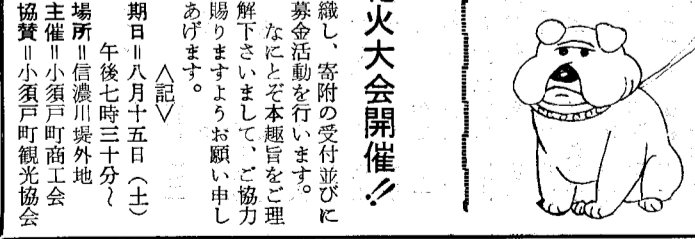 火大会開催!!
織し、寄附の受付並びに
募金活動を行います。
なにとぞ本趣旨をご理
解下さいまして、ご協力
賜りますようお願い申し
あげます。
＜記＞
期日＝八月十五日（土）
午後七時三十分～
場所＝信濃川堤外地
主催＝小須戸町商工会
協賛＝小須戸町観光協会